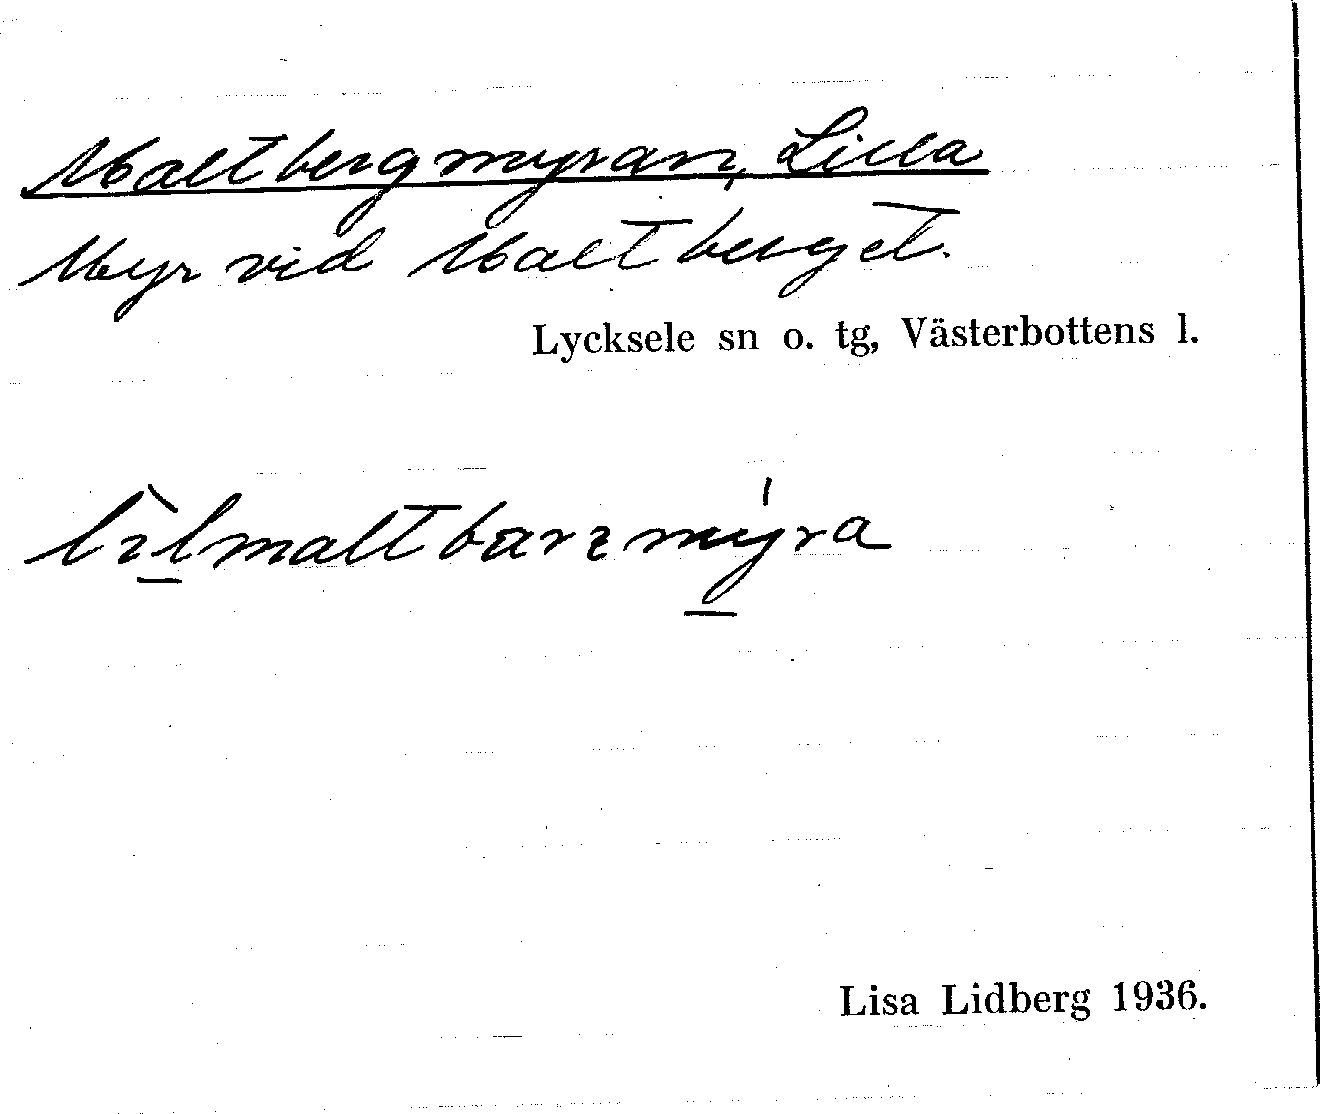 Maltbergmyran, Lilla
Myr vid Maltberget.
Lycksele sn o. tg, Västerbottens l.
Lisa Lidberg 1936.